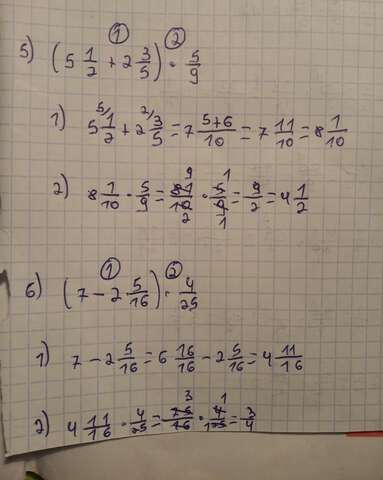 ① ②
5) (5 1/2 + 2 3/5) · 5/9
1) 5 5/1/2 + 2 2/3/5 = 7 5+6/10 = 7 11/10 = 8 1/10
2) 8 1/10 · 5/9 = 81/10 · 5/9 = 9/2 = 4 1/2
① ②
6) (7 - 2 5/16) · 4/25
1) 7 - 2 5/16 = 6 16/16 - 2 5/16 = 4 11/16
2) 4 11/16 · 4/25 = 75/16 · 4/125 = 3/4